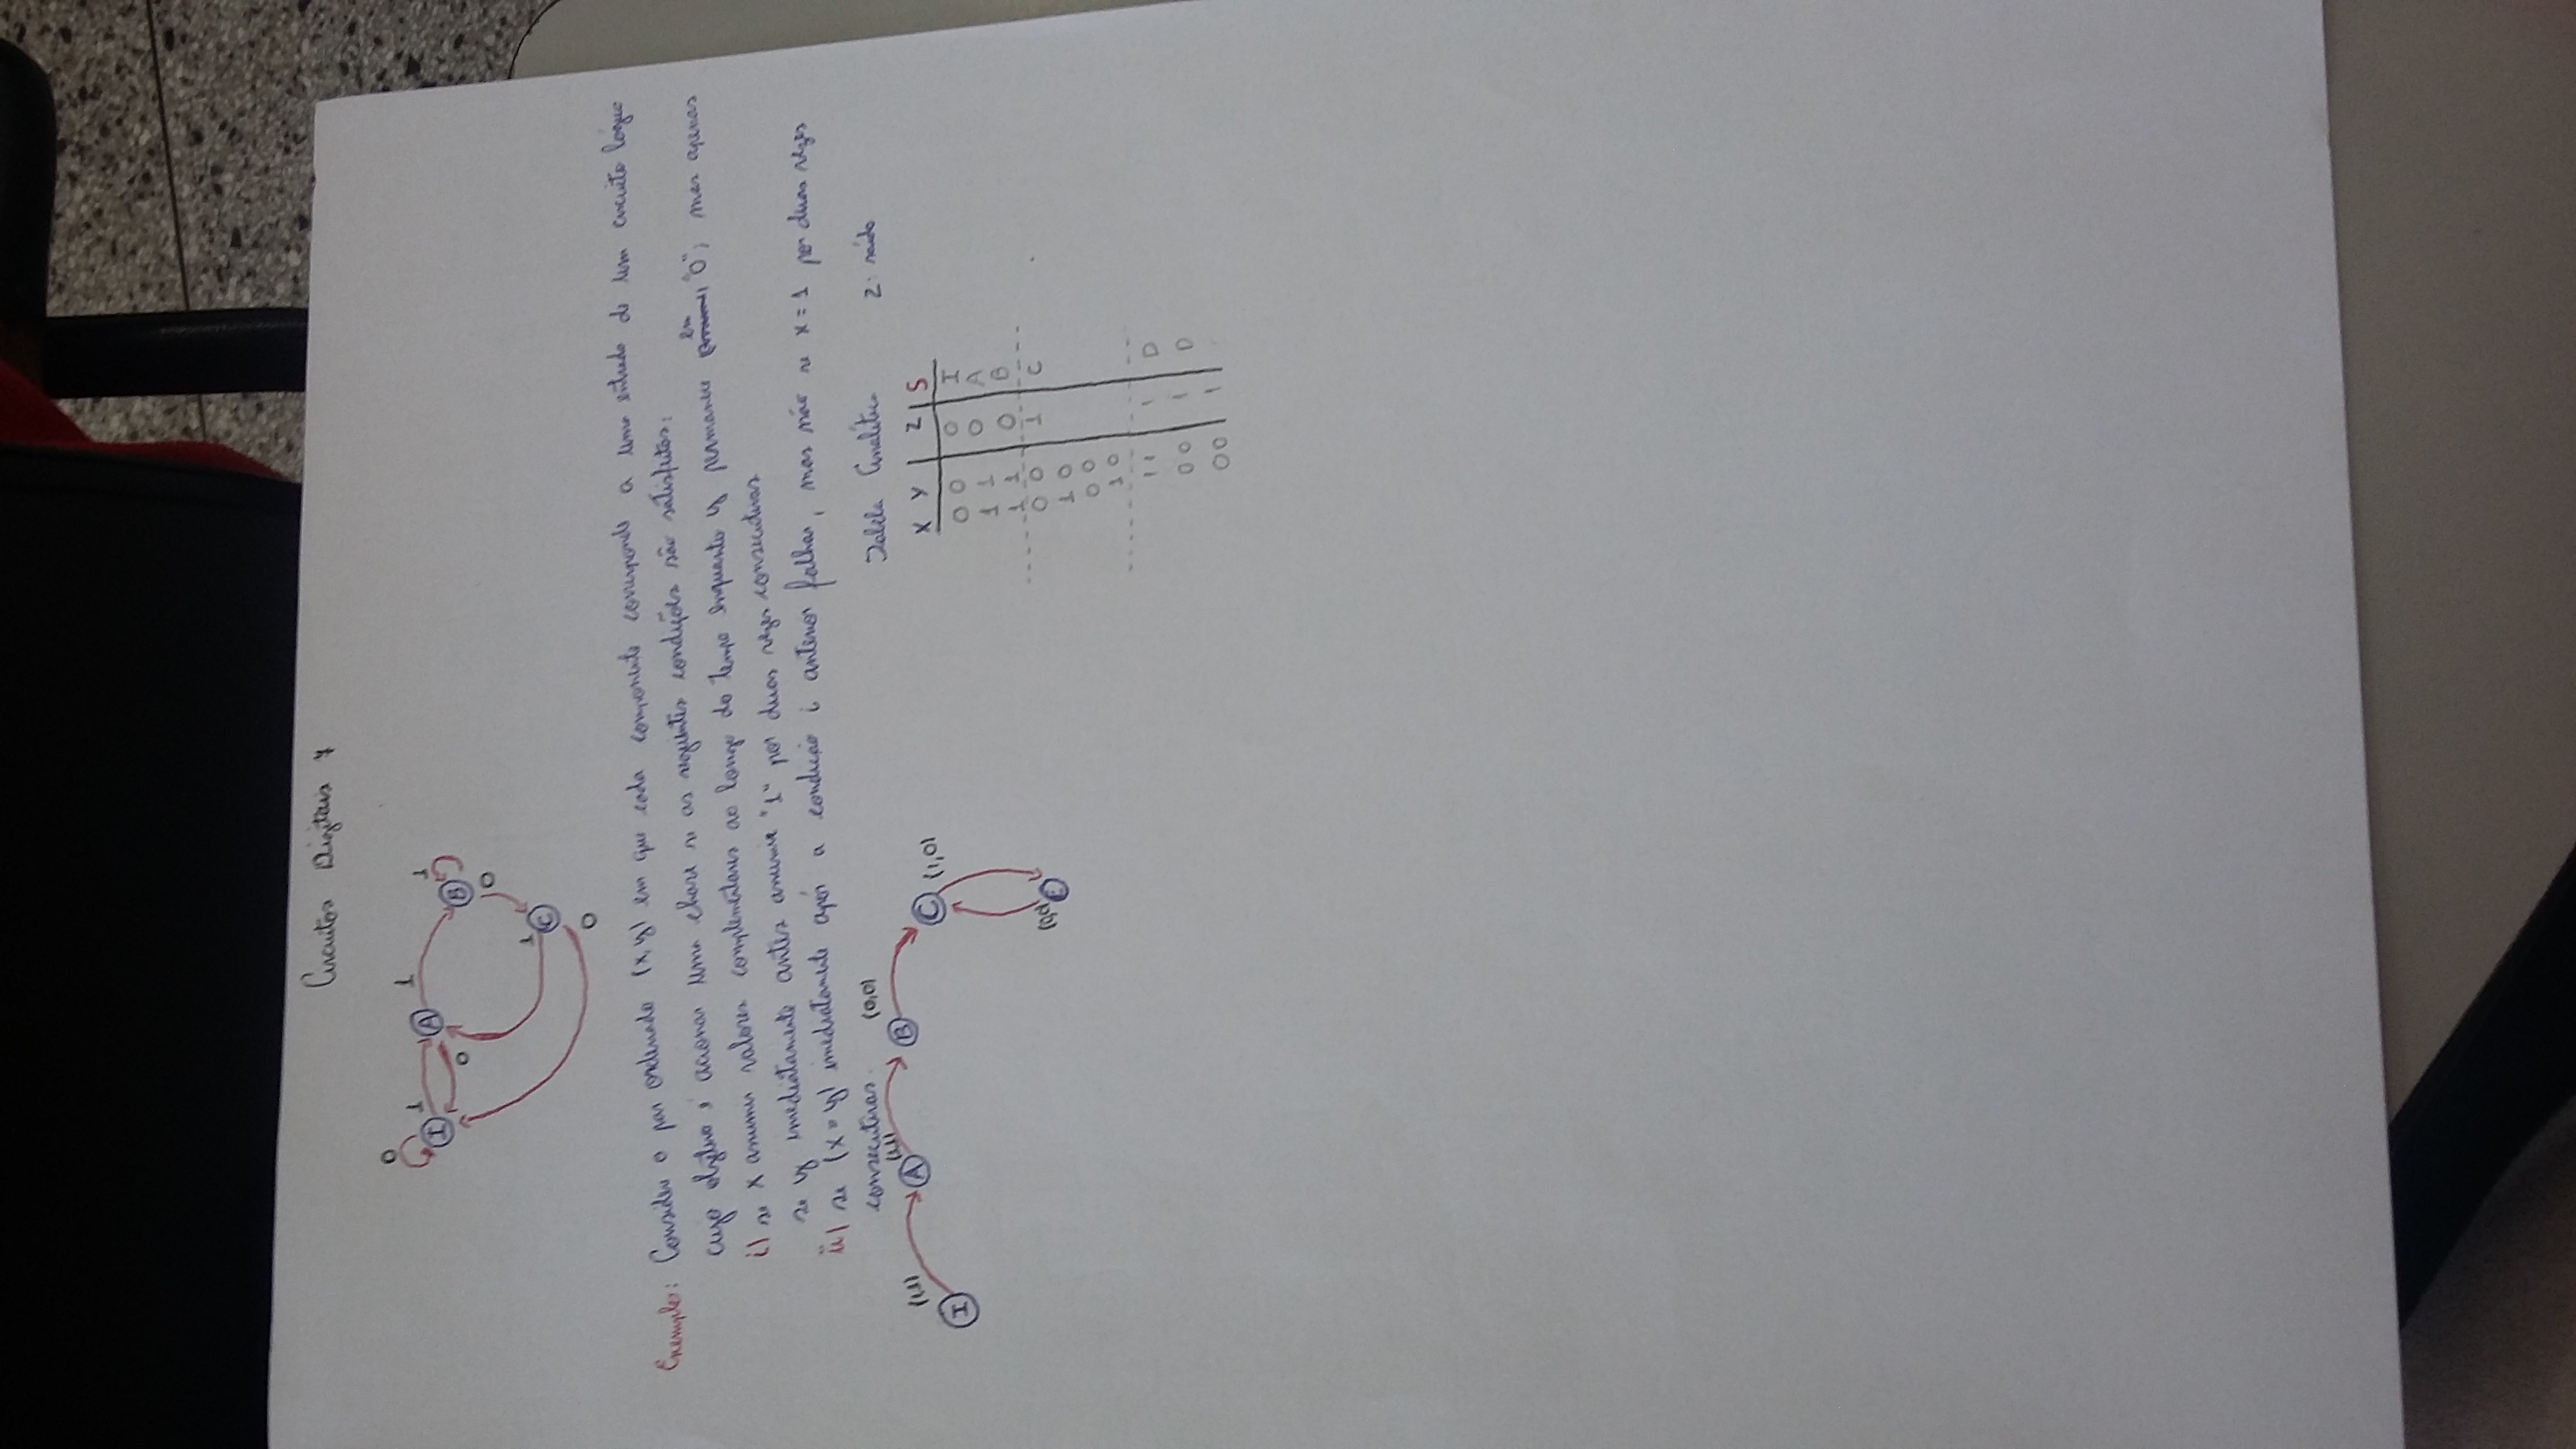 Circuitos Digitais 7
0
I 1 A 1 B 1
0 0
1 C
0
Exemplo: Considere o par ordenado (x,y) em que cada componente corresponde a uma entrada de um circuito lógico
cujo objetivo é acionar uma chave se as seguintes condições são satisfeitas:
i) se x assumir valores complementares ao longo do tempo enquanto y permanece em "0"; mas apenas
se y imediatamente antes assumir "1" por duas vezes consecutivas
ii) se (x=y) imediatamente após a condição i anterior falhar, mas não se x=1 por duas vezes
consecutivas.
(1,1) (1,1) (0,0)
I A B C (1,0)
(0,0)
Tabela Analítica Z: saída
X Y Z S
0 0 0 I
1 1 0 A
1 1 0 B
0 0 1 C
1 0
0 0
1 0
1 1 1 D
0 0 1 D
0 0 1